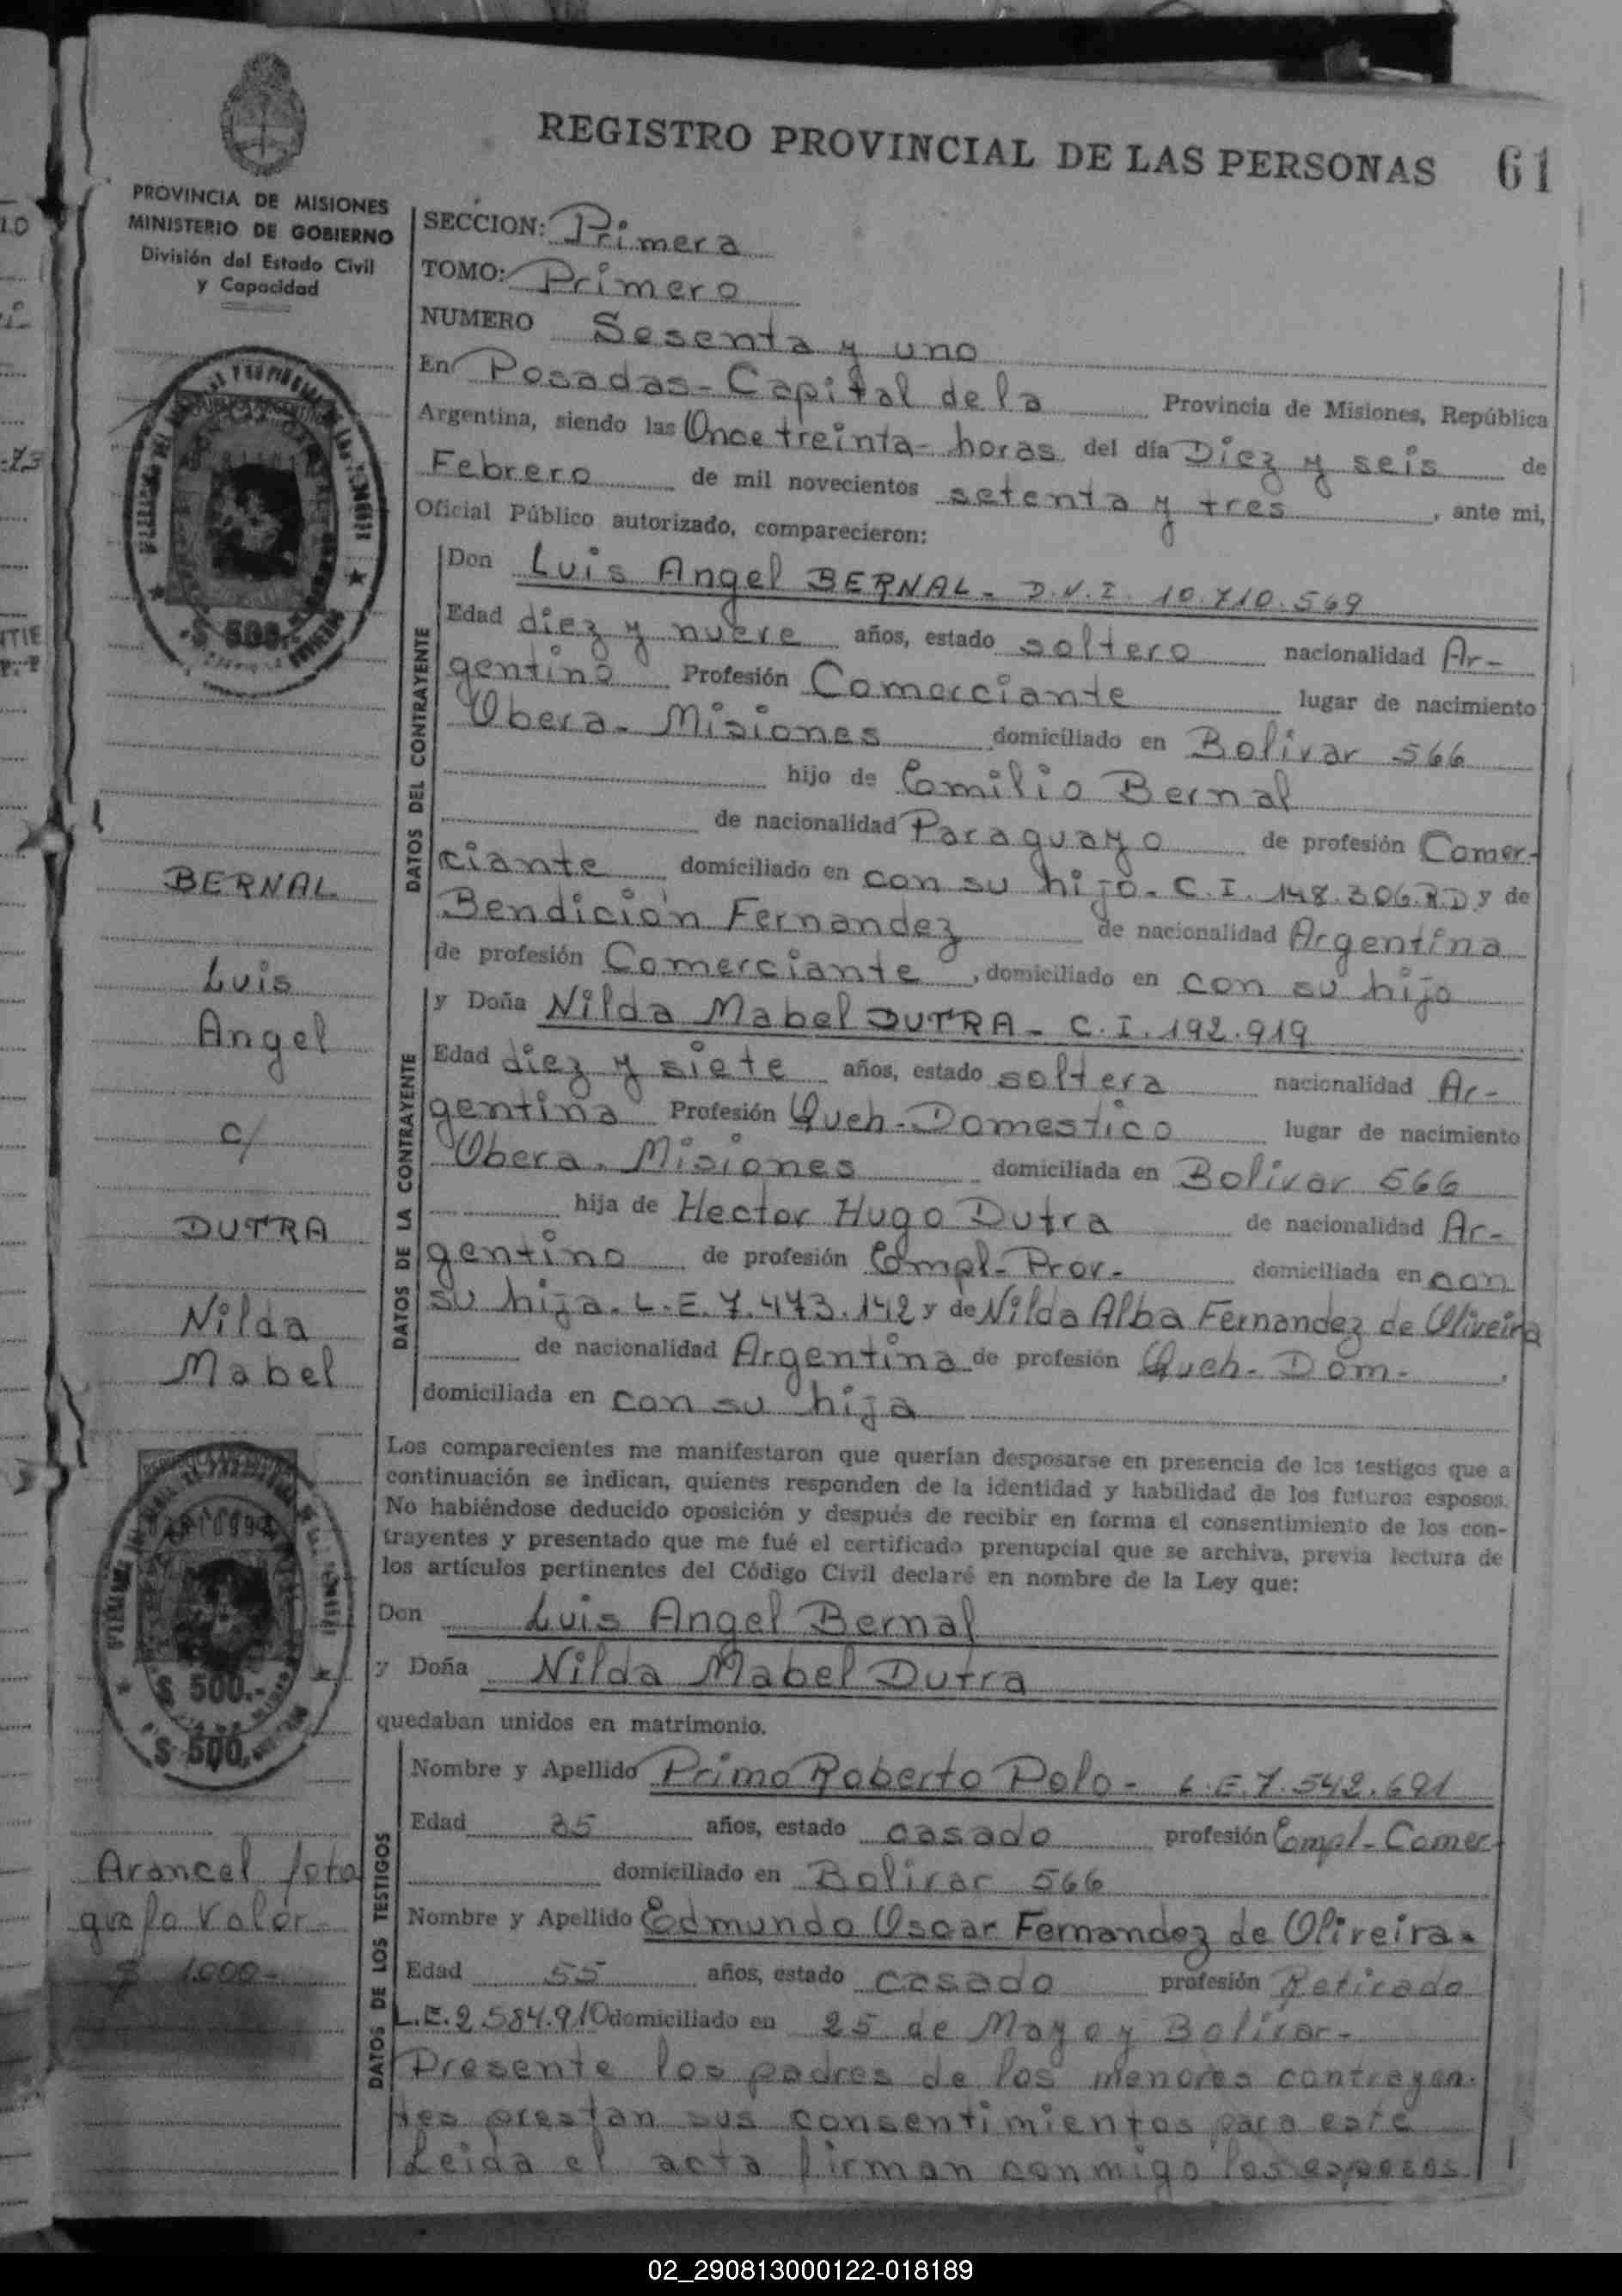 REGISTRO PROVINCIAL DE LAS PERSONAS 61
PROVINCIA DE MISIONES
MINISTERIO DE GOBIERNO
División del Estado Civil
y Capacidad
SECCION: Primera
TOMO: Primero
NUMERO Sesenta y uno
En Posadas - Capital de la Provincia de Misiones, República
Argentina, siendo las Once treinta - horas del día Diez y seis de
Febrero de mil novecientos setenta y tres, ante mi,
Oficial Público autorizado, comparecieron:
DATOS DEL CONTRAYENTE
Don Luis Angel BERNAL - D.N.I. 10.710.569
Edad diez y nueve años, estado soltero nacionalidad Ar-
gentino Profesión Comerciante lugar de nacimiento
Obera - Misiones domiciliado en Bolivar 566
hijo de Comilio Bernal
de nacionalidad Paraguayo de profesión Comer-
ciante domiciliado en con su hijo - C.I. 148.306.R.D y de
Bendición Fernandez de nacionalidad Argentina
de profesión Comerciante, domiciliado en con su hijo
DATOS DE LA CONTRAYENTE
y Doña Nilda Mabel DUTRA - C.I. 192.919
Edad diez y siete años, estado soltera nacionalidad Ar-
gentina Profesión Queh - Domestico lugar de nacimiento
Obera - Misiones domiciliada en Bolivar 566
hija de Hector Hugo Dutra de nacionalidad Ar-
gentino de profesión Empl - Prov - domiciliada en con
su hija - L.E. 7.473.142 y de Nilda Alba Fernandez de Oliveira
de nacionalidad Argentina de profesión Queh - Dom -,
domiciliada en con su hija
BERNAL
Luis
Angel
c/
DUTRA
Nilda
Mabel
$ 500.-
Los comparecientes me manifestaron que querían desposarse en presencia de los testigos que a
continuación se indican, quienes responden de la identidad y habilidad de los futuros esposos.
No habiéndose deducido oposición y después de recibir en forma el consentimiento de los con-
trayentes y presentado que me fué el certificado prenupcial que se archiva, previa lectura de
los artículos pertinentes del Código Civil declaré en nombre de la Ley que:
Don Luis Angel Bernal
y Doña Nilda Mabel Dutra
quedaban unidos en matrimonio.
$ 500.-
$ 500.
DATOS DE LOS TESTIGOS
Nombre y Apellido Primo Roberto Polo - L.E. 7.542.691
Edad 35 años, estado casado profesión Empl - Comer-
domiciliado en Bolivar 566
Nombre y Apellido Edmundo Oscar Fernandez de Oliveira -
Edad 55 años, estado casado profesión Retirado
L.E. 2.584.910 domiciliado en 25 de Mayo y Bolivar -
Presente los padres de los menores contrayen-
tes prestan sus consentimientos para este
Leida el acta firman conmigo los esposos
Arancel foto
grafo Valor -
$ 1.000 -
02_290813000122-018189